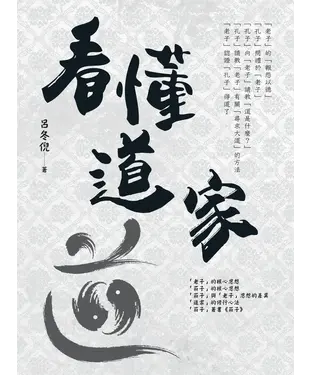 看懂道家
呂冬倪 著
「老子」的「報怨以德」
「孔子」問禮於「老子」
「孔子」向「老子」請教「道是什麼？」
「孔子」請教「老子」有關「尋求大道」的方法
「老子」認證「孔子」得道了
「老子」的核心思想
「莊子」的核心思想
「莊子」與「老子」思想的差異
「道家」的修行心法
「莊子」著書《莊子》